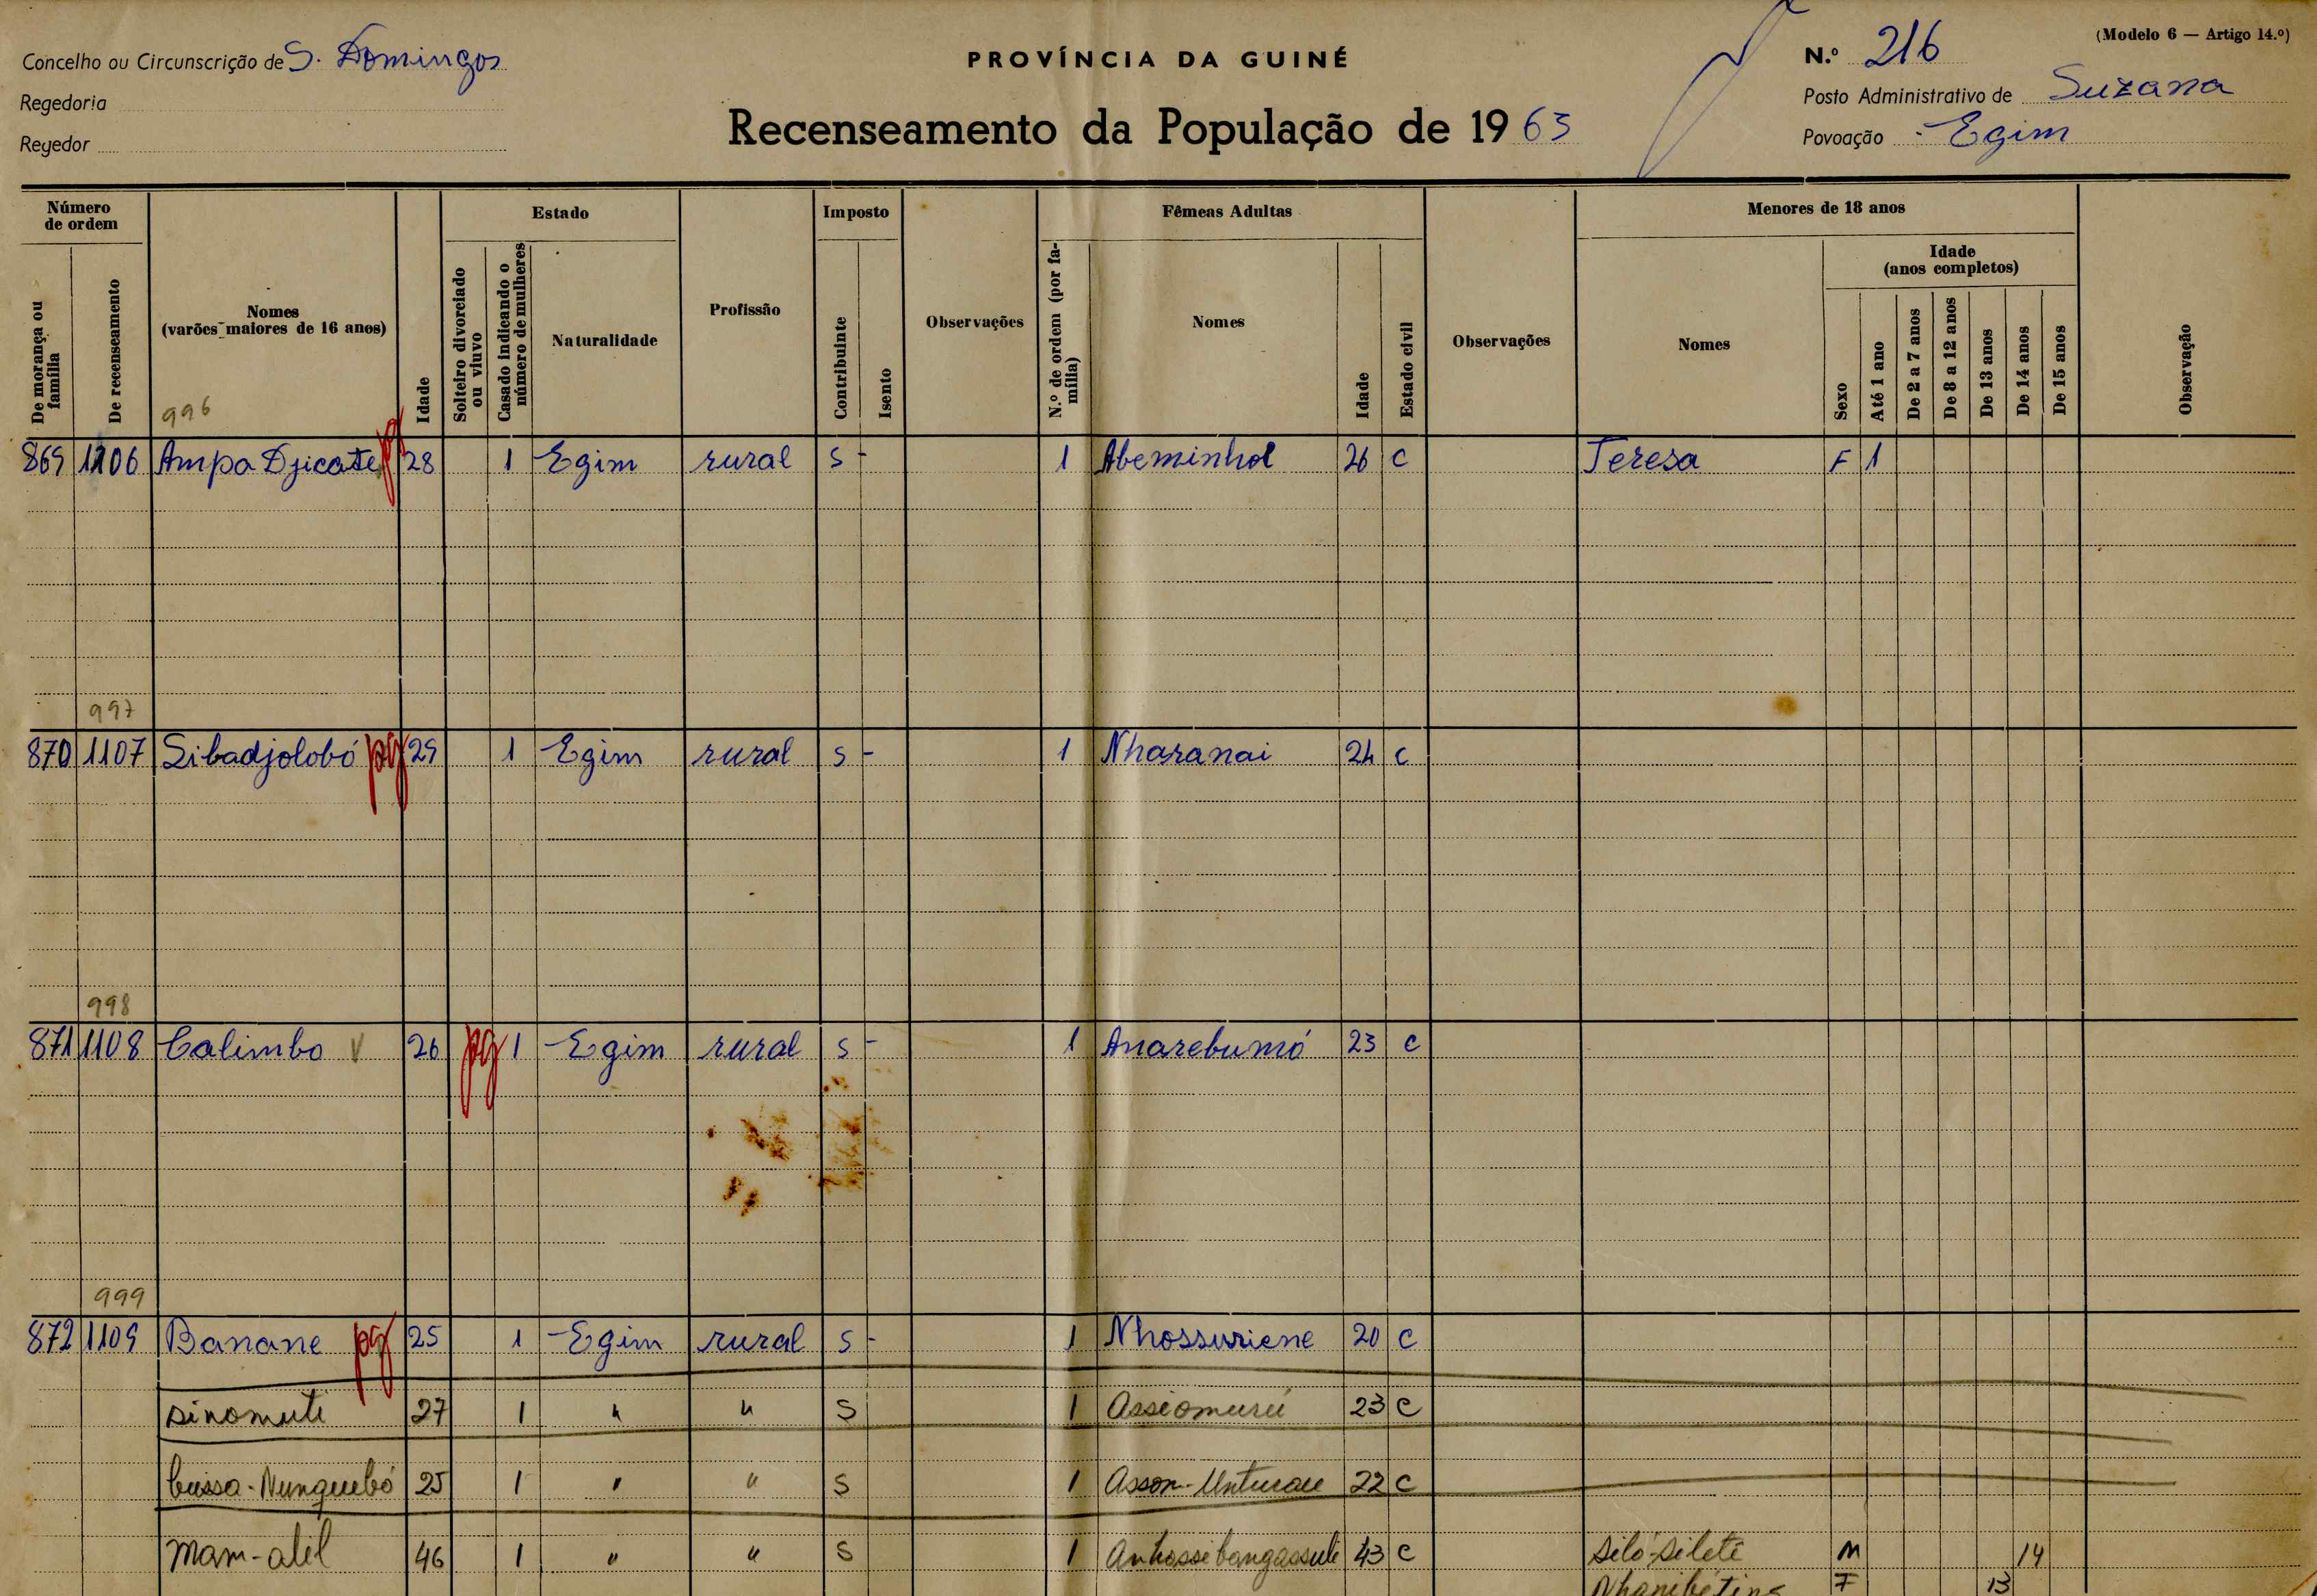 Concelho ou Circunscrição de S. Domingos
Regedoria
Regedor
PROVÍNCIA DA GUINÉ
Recenseamento da População de 1963
(Modelo 6 — Artigo 14.º)
N.º 216
Posto Administrativo de Suzana
Povoação Egim
Número de ordem
De morança ou família
De recenseamento
Nomes (varões maiores de 16 anos)
996
Idade
Estado
Solteiro divorciado ou viuvo
Casado indicando o número de mulheres
Naturalidade
Profissão
Imposto
Contribuinte
Isento
Observações
Fêmeas Adultas
N.º de ordem (por família)
Nomes
Idade
Estado civil
Observações
Menores de 18 anos
Nomes
Idade (anos completos)
Sexo
Até 1 ano
De 2 a 7 anos
De 8 a 12 anos
De 13 anos
De 14 anos
De 15 anos
Observação
869 1106 Ampa Djicate pg 28 1 Egim rural S - 1 Abeminhol 26 C Teresa F 1
997
870 1107 Sibadjolobó pg 29 1 Egim rural S - 1 Nharanai 24 C
998
871 1108 Calimbo V 26 pg 1 Egim rural S - 1 Anarebumó 23 C
999
872 1109 Banane pg 25 1 Egim rural S - 1 Nhossuriene 20 C
Sinomute 27 1 " " S 1 Assiomurú 23 C
25 1 " " S 1 22 C
Mam-alel 46 1 " " S 1 43 C Siló-Sileté M 14
F 13